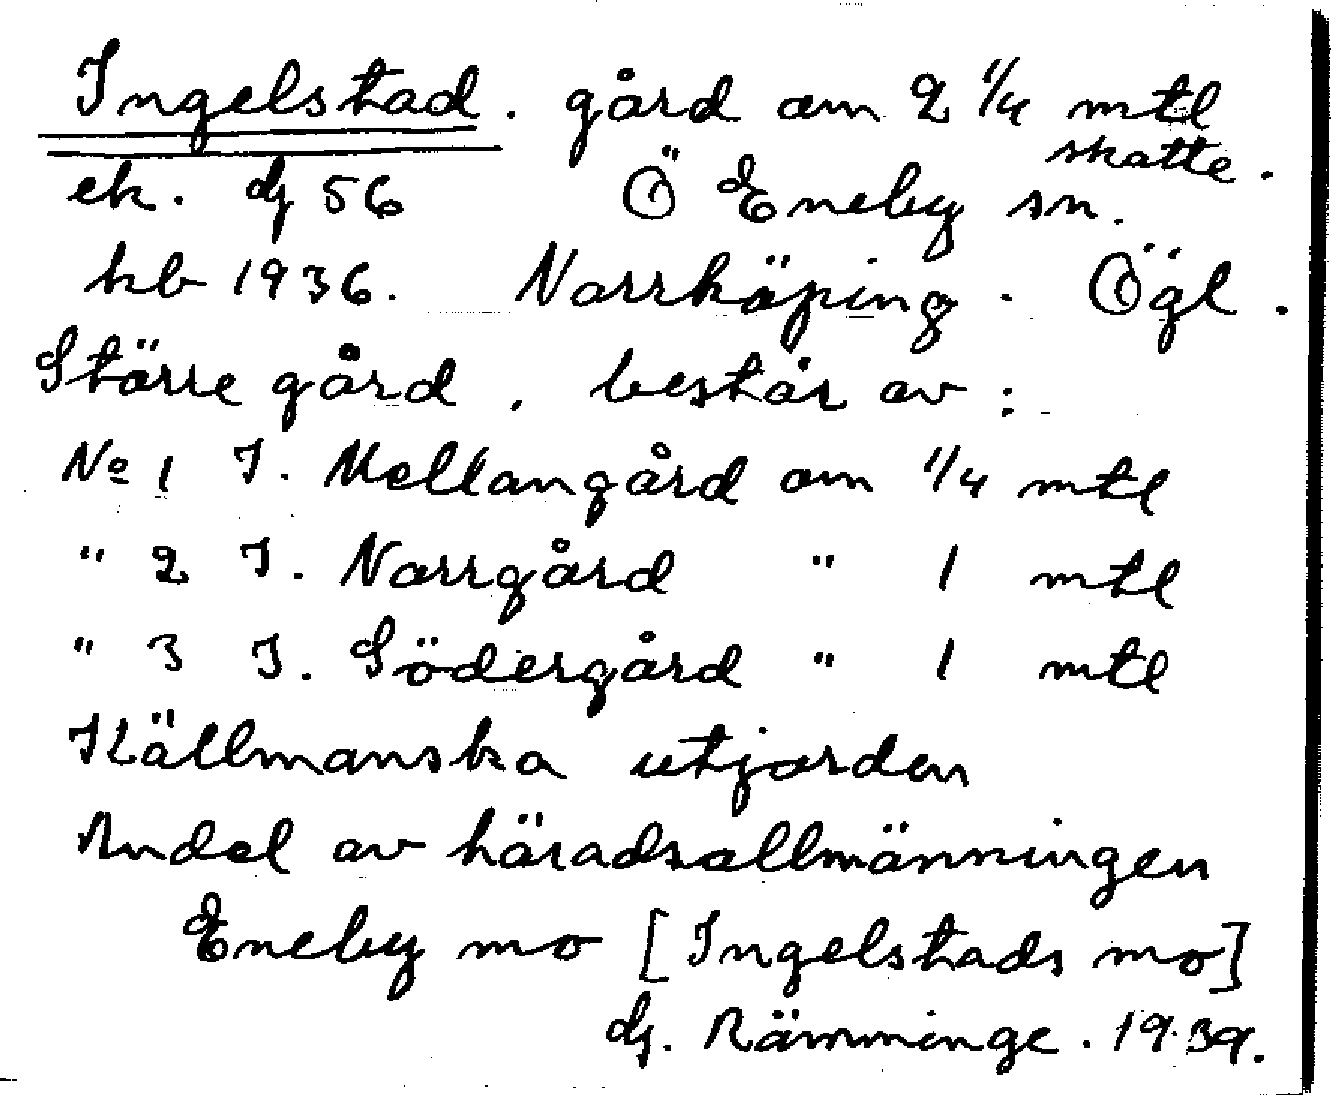 Ingelstad. gård om 2 1/4 mtl skatte.
ek. dj 56 Ö Eneby sn.
kb 1936. Norrköping. Ögl.
Större gård, består av:
No 1 I. Mellangård om 1/4 mtl
" 2 I. Norrgård " 1 mtl
" 3 I. Södergård " 1 mtl
Källmanska utjorden
Andel av häradsallmänningen
Eneby mo [Ingelstads mo]
dj. Rämminge. 1939.